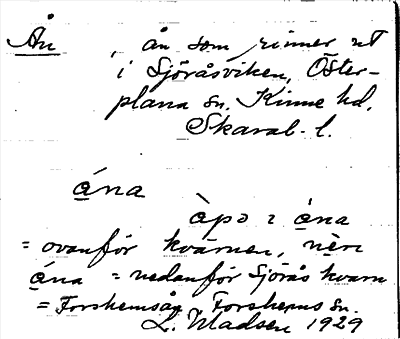 Ån
, ån som rinner ut
i Sjöråsviken, Öster-
plana sn. Kinne hd.
Skarab. l.
ána
àpə ı ána
= ovanför kvarnen, nèri
ána = nedanför Sjörås kvarn
= Forshemsån, Forshems sn.
L. Madsen 1929